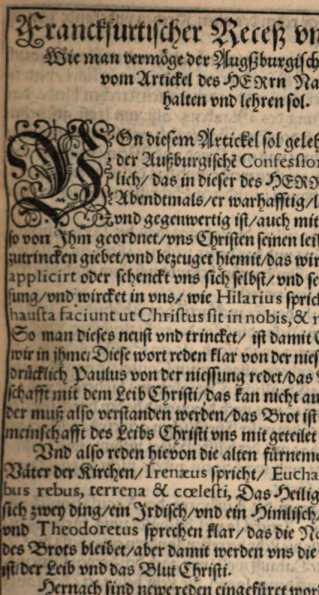 Franckfurtischer Receß vn
Wie man vermöge der Augßburgisch
vom Artickel des HERrn Na
halten vnd lehren sol.
VOn diesem Artickel sol geleh
der Außburgischē Confession
lich/ das in dieser des HERR
Abendtmals/ er warhafftig/ l
vnd gegenwertig ist/ auch mit
so von Ihm geordnet/ vns Christen seinen leib
zutrincken giebet/ vnd bezeuget hiemit/ das wir
applicirt oder schenckt vns sich selbst/ vnd se
sung/ vnd wircket in vns/ wie Hilarius sprich
hausta faciunt ut Christus sit in nobis, & n
So man dieses neust vnd trincket/ ist damit C
wir in ihme/ Diese wort reden klar von der nies
drücklich Paulus von der niessung redet/ das
schafft mit dem Leib Christi/ das kan nicht au
der muß also verstanden werden/ das Brot ist
meinschafft des Leibs Christi vns mit geteilet
Vnd also reden hievon die alten fürneme
Väter der Kirchen/ Irenæus spricht/ Eucha
bus rebus, terrena & cœlesti, Das Heilig
sich zwey ding/ ein Irdisch/ vnd ein Himlisch/
vnd Theodoretus sprechen klar/ das die Na
des Brots bleibet/ aber damit werden vns die
ist/ der Leib vnd das Blut Christi.
Hernach sind newe reden eingefüret wor